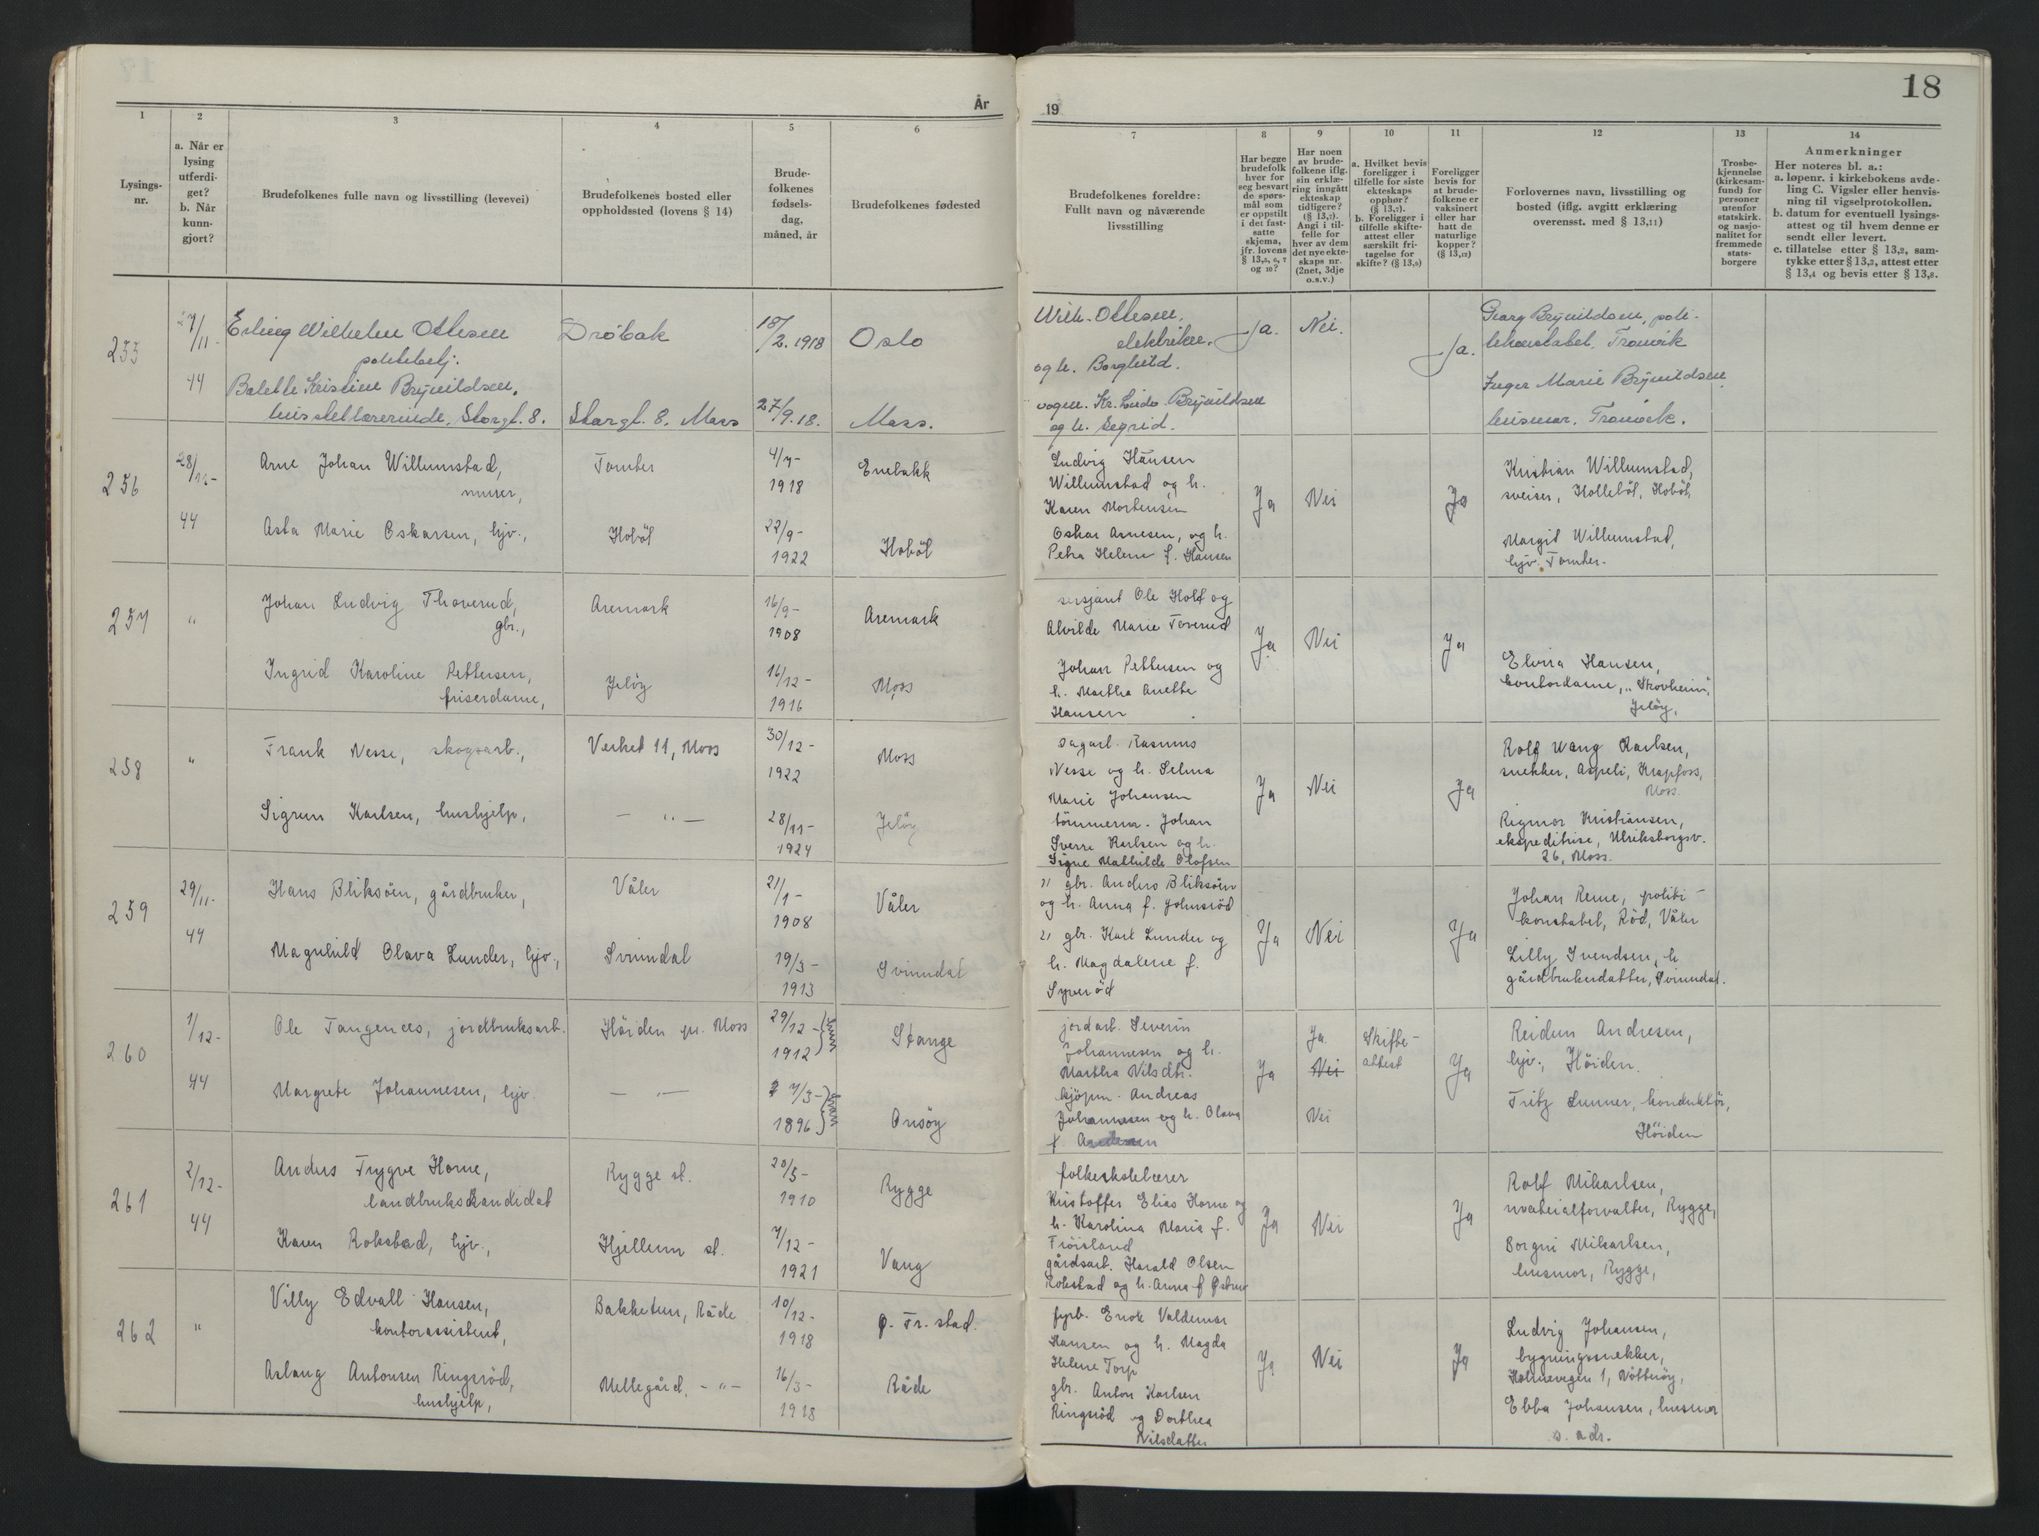 18
År
19
1
2
3
4
5
6
7
8
9
10
11
12
13
14
Lysings-
nr.
a. Når er
lysing
utferdi-
get?
b. Når
kunn-
gjort?
Brudefolkenes fulle navn og livsstilling (levevei)
Brudefolkenes bosted eller
oppholdssted (lovens § 14)
Brude-
folkenes
fødsels-
dag,
måned, år
Brudefolkenes fødested
Brudefolkenes foreldre:
Fullt navn og nåværende
livsstilling
Har begge
brudefolk
hver for
seg besvart
de spørs-
mål som
er oppstilt
i det fast-
satte
skjema,
jfr. lovens
§ 13,5, 6, 7
og 10?
Har noen
av brude-
folkene iflg.
sin erklæ-
ring inngått
ekteskap
tidligere?
(§ 13,7).
Angi i til-
felle for
hver av dem
det nye ekte-
skaps nr.
(2net, 3dje
o.s.v.)
a. Hvilket bevis
foreligger i
tilfelle for siste
ekteskaps
opphør?
(§ 13,7).
b. Foreligger i
tilfelle skifte-
attest eller
særskilt fri-
tagelse for
skifte? (§ 13,9)
Foreligger
bevis for
at brude-
folkene er
vaksinert
eller har
hatt de
naturlige
kopper?
(§ 13,12)
Forlovernes navn, livsstilling og
bosted (iflg. avgitt erklæring
overensst. med § 13,11)
Trosbe-
kjennelse
(kirkesam-
fund) for
personer
utenfor
statskirk.
og nasjo-
nalitet for
fremmede
stats-
borgere
Anmerkninger
Her noteres bl. a.:
a. løpenr. i kirkebokens avde-
ling C. Vigsler eller henvis-
ning til vigselprotokollen.
b. datum for eventuell lysings-
attest og til hvem denne er
sendt eller levert.
c. tillatelse etter § 13,2, sam-
tykke etter § 13,3, attest etter
§ 13,4 og bevis etter § 13,8.
255
27/11-
44
Erling Wilhelm Ottesen
politibetj.
Drøbak
18/2. 1918
Oslo
Wilh. Ottesen,
elektriker,
og h. Borghild.
Ja.
Nei.
Ja.
Georg Brynildsen, poli-
tikonstabel, Tronvik
Bolette Kristine Brynildsen,
husstellærerinde, Storgt. 8.
Storgt. 8, Moss
27/9. 18.
Moss.
vogm. Kr. Brynildsen
og h. Segrid.
Inger Marie Brynildsen
husmor, Tronvik.
256
28/11-
44
Arne Johan Willumstad,
murer,
Tomter
4/7-
1918
Enebakk
Ludvig Hansen
Willumstad og h.
Karen Mortensen
Ja
Nei
Ja
Kristian Willumstad,
sveiser, Holleböl, Hoböl,
Asta Marie Oskarsen, hjv.,
Hoböl
22/9-
1922
Hoböl
Oskar Arnesen, og h.
Petra Helene f. Hansen
Margit Willumstad,
hjv. Tomter.
257
"
Johan Ludvig Thoverud,
gbr.,
Aremark
16/9-
1908
Aremark
sersjant Ole Holt og
Alvilde Marie Toverud
Ja
Nei
Ja
Ingrid Karoline Pettersen,
friserdame,
Jelöy
16/12-
1916
Moss
Johan Pettersen og
h. Martha Anette
Hansen
Elvira Hansen,
kontordame, "Skovheim",
Jelöy,
258
"
Frank Nesse, skogsarb.,
Verket 11, Moss
30/12-
1922
Moss
sagarb. Rasmus
Nesse og h. Selma
Marie Johansen
Ja
Nei
Ja
Rolf Wang Karlsen,
snekker, Aspeli, Krapfoss,
Moss.
Sigrun Karlsen, hushjelp,
— " —
28/11-
1924
Jelöy
tömmerm. Johan
Sverre Karlsen og h.
Signe Mathilde Olofsen
Rigmor Kristiansen,
ekspeditrise, Ulriksborgv.
26, Moss.
259
29/11-
44
Hans Bliksöen, gårdbruker,
Våler
21/1-
1908
Våler
1) gbr. Anders Bliksöen
og h. Anna f. Johnsröd
Ja
Nei
Ja
Johan Reme, politi-
konstabel, Röd, Våler
Magnhild Olava Lunder, hjv.,
Svinndal
19/3-
1913
Svinndal
2) gbr. Karl Lunder og
h. Magdalene f.
Syveröd
Lilly Svendsen, h
gårdbrukerdatter, Svinndal.
260
1/12-
44
Ole Tangenes, jordbruksarb.
Höiden pr. Moss
29/12-
1912
Stange
jordarb. Severin
Johannesen og h.
Martha Nilsdtr.
Ja
Ja
Nei
Skifte-
attest
Ja
Reidun Andresen,
hjv., Höiden.
Margrete Johannesen, hjv.
— " —
7/3-
1896
Onsöy
kjöpm. Andreas
Johannesen og h. Olava
f. Andersen
Nei
Fritz Lunner, konduktör,
Höiden
261
2/12-
44
Anders Trygve Horne,
landbrukskandidat
Rygge st.
20/5-
1910
Rygge
folkeskolelærer
Kristoffer Elias Horne og
h. Karolina Maria f.
Tröisland
Ja
Nei
Ja
Rolf Mikarlsen,
materialforvalter, Rygge,
Karen Rokstad, hjv.,
Hjellum st.
7/12-
1921
Vang
gårdsarb. Harald Olsen
Rokstad og h. Anna f
Borgni Mikarlsen,
husmor, Rygge,
262
"
Villy Edvall Hansen,
kontorassistent,
Bakketun, Råde
10/12-
1918
Ø. Fr. stad.
fyrb. Enok Valdemar
Hansen og h. Magda
Helene Torp
Ja
Nei
Ja
Ludvig Johansen,
bygningssnekker,
Holmevegen 1, Nötteröy,
Aslaug Antonsen Ringsröd,
hushjelp,
Mellegård, - " -
16/3-
1918
Råde
gbr. Anton Karlsen
Ringsröd og Dorthea
Nilsdatter
Ebba Johansen, husmor
s. adr.